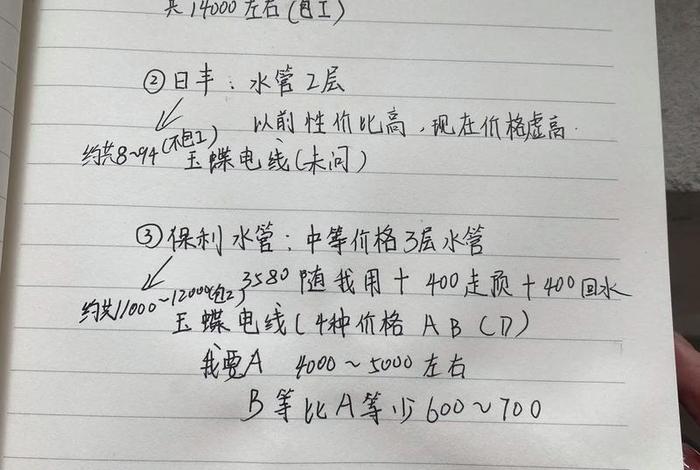 共14000左右(包工)
②日丰:水管2层
以前性价比高,现在价格虚高.
约共8~9千(不包工)
玉蝶电线(未问)
③保利水管:中等价格3层水管
3580随我用+400走顶+400回水
约共11000~12000(包工)
玉蝶电线(4种价格ABCD)
我要A 4000~5000左右
B等比A等少600~700